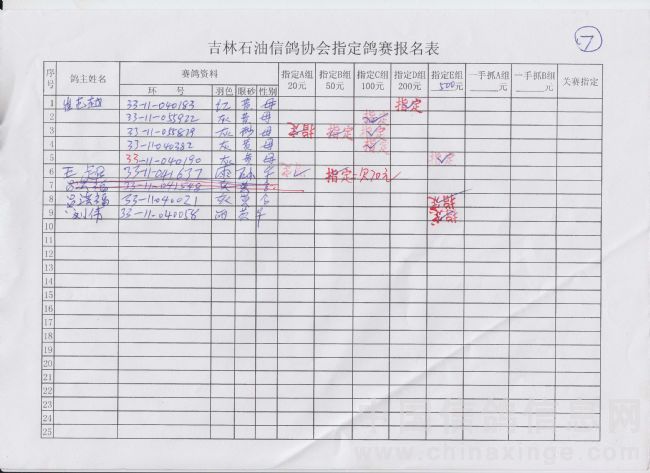 ⑦
吉林石油信鸽协会指定鸽赛报名表
序号 鸽主姓名 赛鸽资料 指定A组 20元 指定B组 50元 指定C组 100元 指定D组 200元 指定E组 500元 一手抓A组 ____元 一手抓B组 ____元 关赛指定
环 号 羽色 眼砂 性别
1 33-11-040183 红 黄 母 指定
2 33-11-055922 灰 黄 母 指定
3 33-11-055879 灰 母 指定 指定 指定
4 33-11-040382 灰 黄 母 指定
5 33-11-040190 灰 黄 母 指定
6 33-11-041637 指定 指定
7 33-11-041548 灰 黄
8 33-11-040021 灰 黄 指定
9 33-11-040058 雨 黄 指定
10
11
12
13
14
15
16
17
18
19
20
21
22
23
24
25
中国信鸽信息网
www.chinaxinge.com